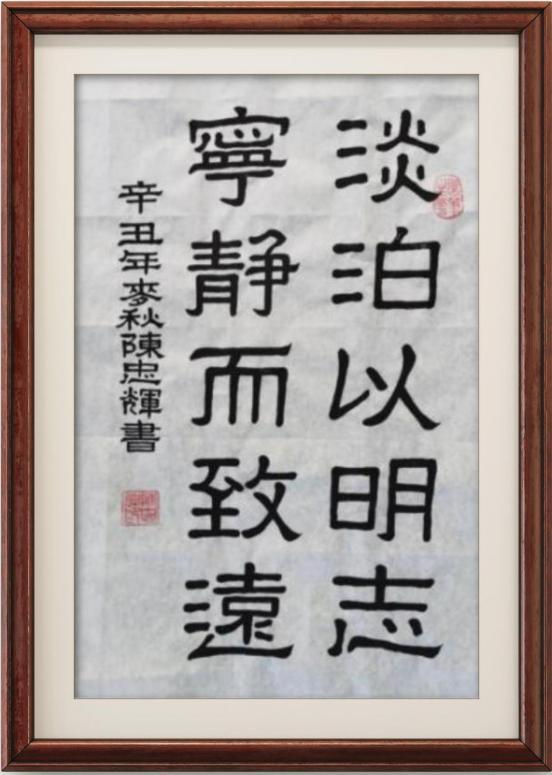 淡泊以明志
寧静而致遠
辛丑年麥秋陳忠輝書